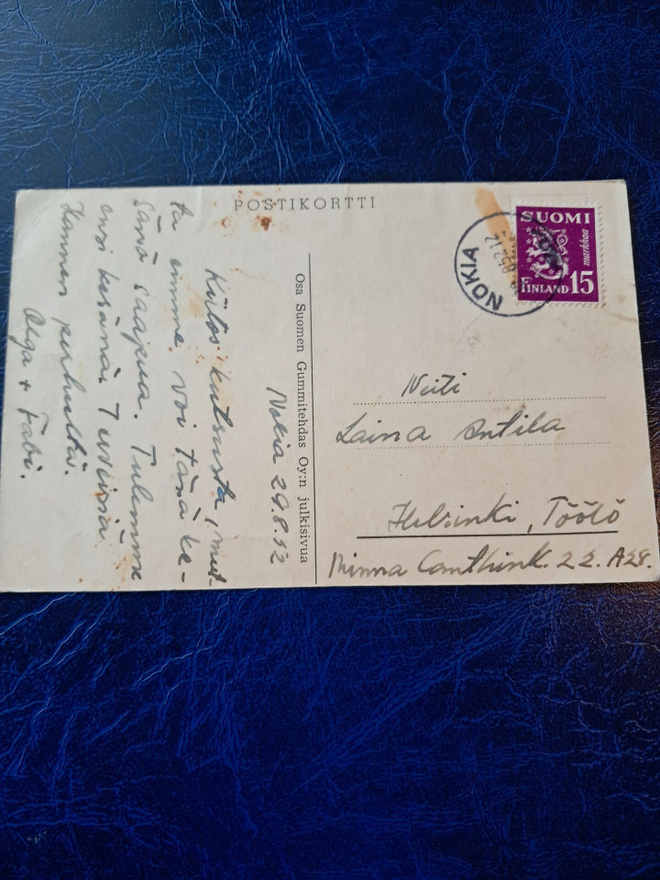 POSTIKORTTI
Nokia 29.8.52
Kiitos kutsusta, mut-
ta emme voi tänä ke-
sänä saapua. Tulemme
ensi kesänä. Terveisiä
Hannen perheeltä.
Olga + Fabi.
Osa Suomen Gummitehdas Oy:n julkisivua
NOKIA
SUOMI
markkaa
FINLAND 15
Neiti
Laina Antila
Helsinki, Töölö
Minna Canthink. 22. A28.